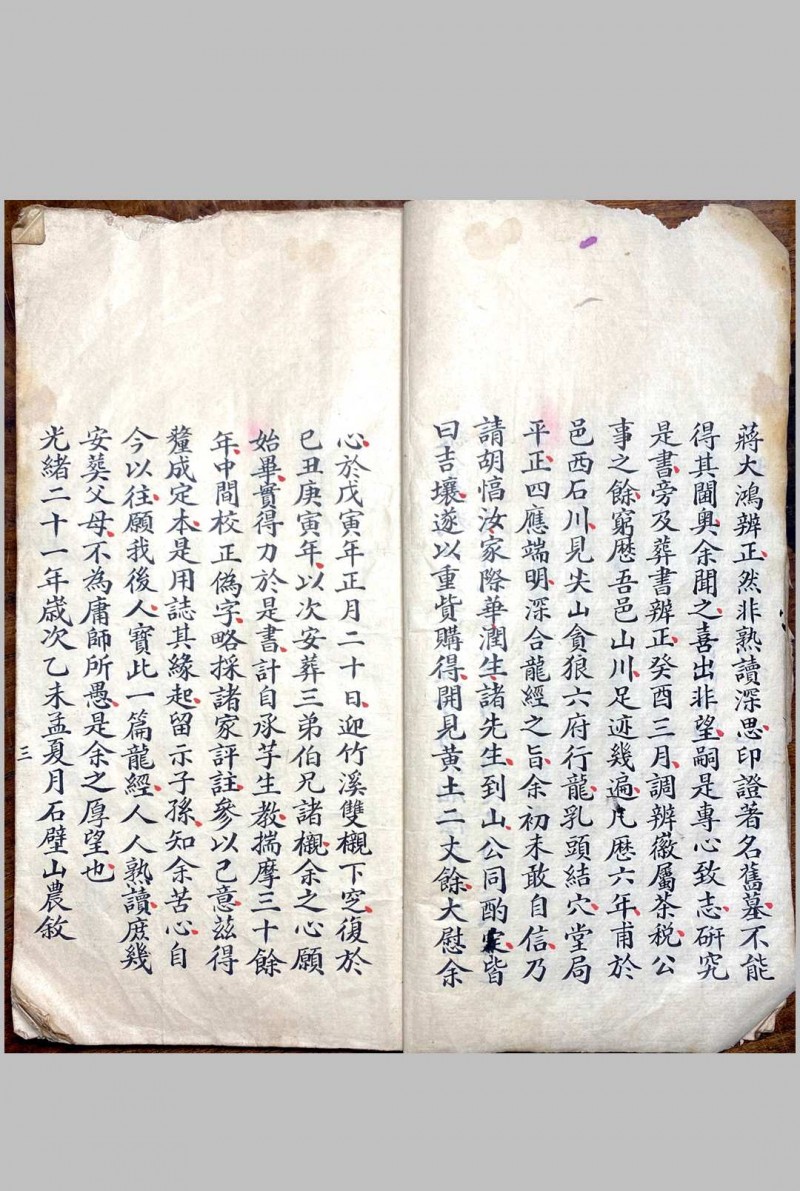 蔣大鴻辨正然非熟讀深思印證著名舊墓不能
得其閫奧余聞之喜出非望嗣是專心致志研究
是書旁及葬書辨正癸酉三月調辦徽屬茶稅公
事之餘窮歷吾邑山川足迹幾遍凡歷六年甫於
邑西石川見尖山貪狼六府行龍乳頭結穴堂局
平正四應端明深合龍經之旨余初未敢自信乃
請胡愊汝家際華潤生諸先生到山公同酌定皆
曰吉壤遂以重貲購得開見黃土二丈餘大慰余
心於戊寅年正月二十日迎竹溪雙櫬下窆復於
己丑庚寅年以次安葬三弟伯兄諸櫬余之心願
始畢實得力於是書計自承芋生教揣摩三十餘
年中間校正偽字略採諸家評註參以己意茲得
釐成定本是用誌其緣起留示子孫知余苦心自
今以往願我後人寶此一篇龍經人人熟讀庶幾
安葬父母不為庸師所愚是余之厚望也
光緒二十一年歲次乙未孟夏月石壁山農敘
三